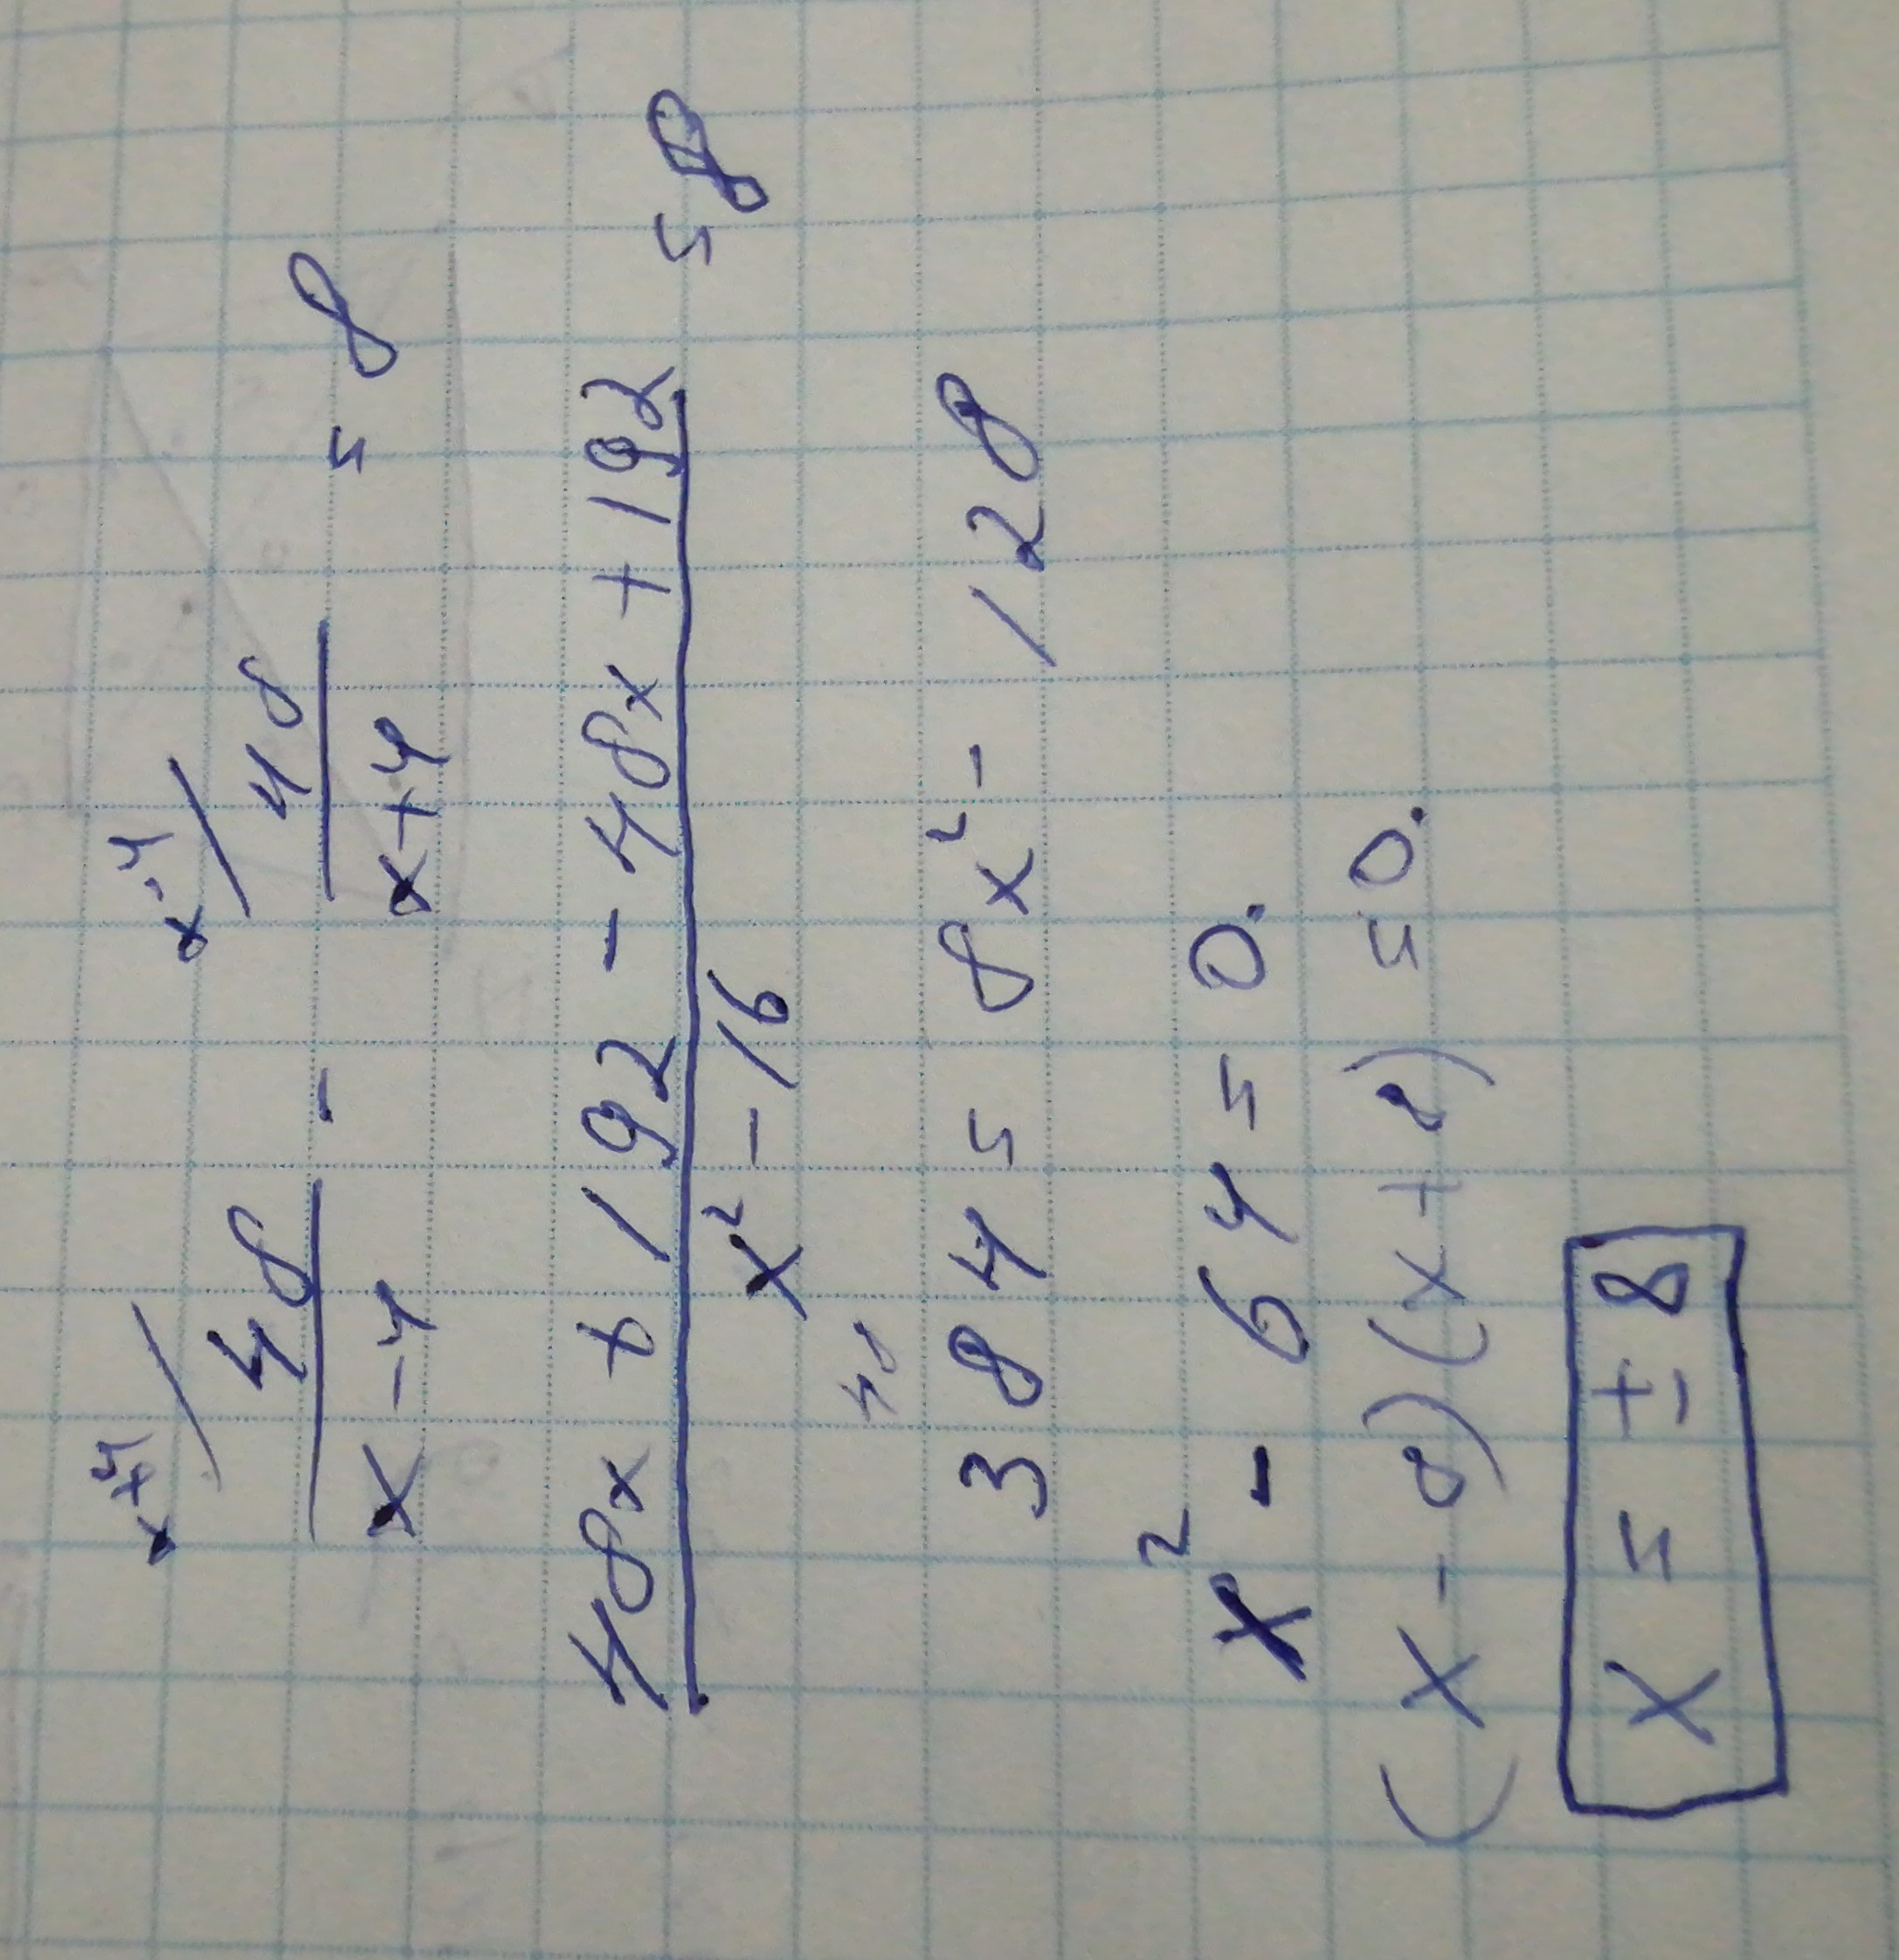 x+4/ 48/(x-4) - x-4/ 48/(x+4) = 8
(48x + 192 - 48x + 192)/(x² - 16) = 8
384 = 8x² - 128
x² - 64 = 0.
(x - 8)(x + 8) = 0.
x = ± 8